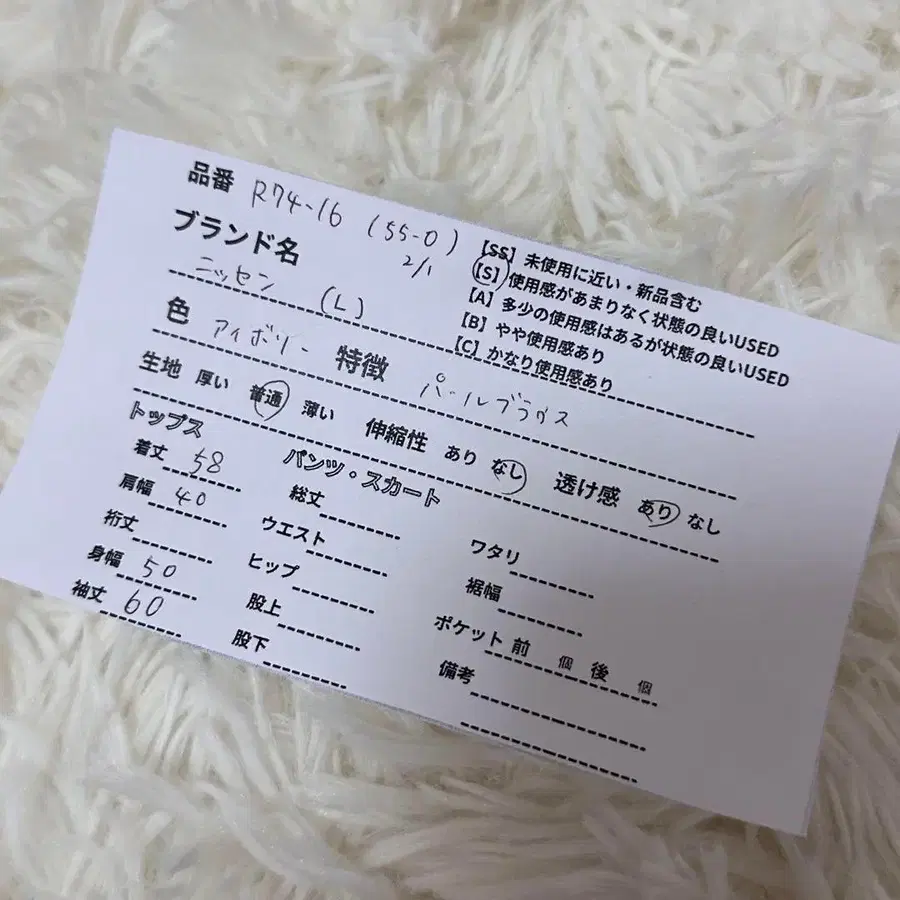 品番 R74-16 (SS-0)
2/1
ブランド名
ニッセン (L)
【SS】未使用に近い・新品含む
【S】使用感があまりなく状態の良いUSED
【A】多少の使用感はあるが状態の良いUSED
【B】やや使用感あり
【C】かなり使用感あり
色 アイボリー 特徴 パールブラウス
生地 厚い 普通 薄い 伸縮性 あり なし 透け感 あり なし
トップス
着丈 58
肩幅 40
裄丈
身幅 50
袖丈 60
パンツ・スカート
総丈
ウエスト
ヒップ
股上
股下
ワタリ
裾幅
ポケット 前 個 後 個
備考